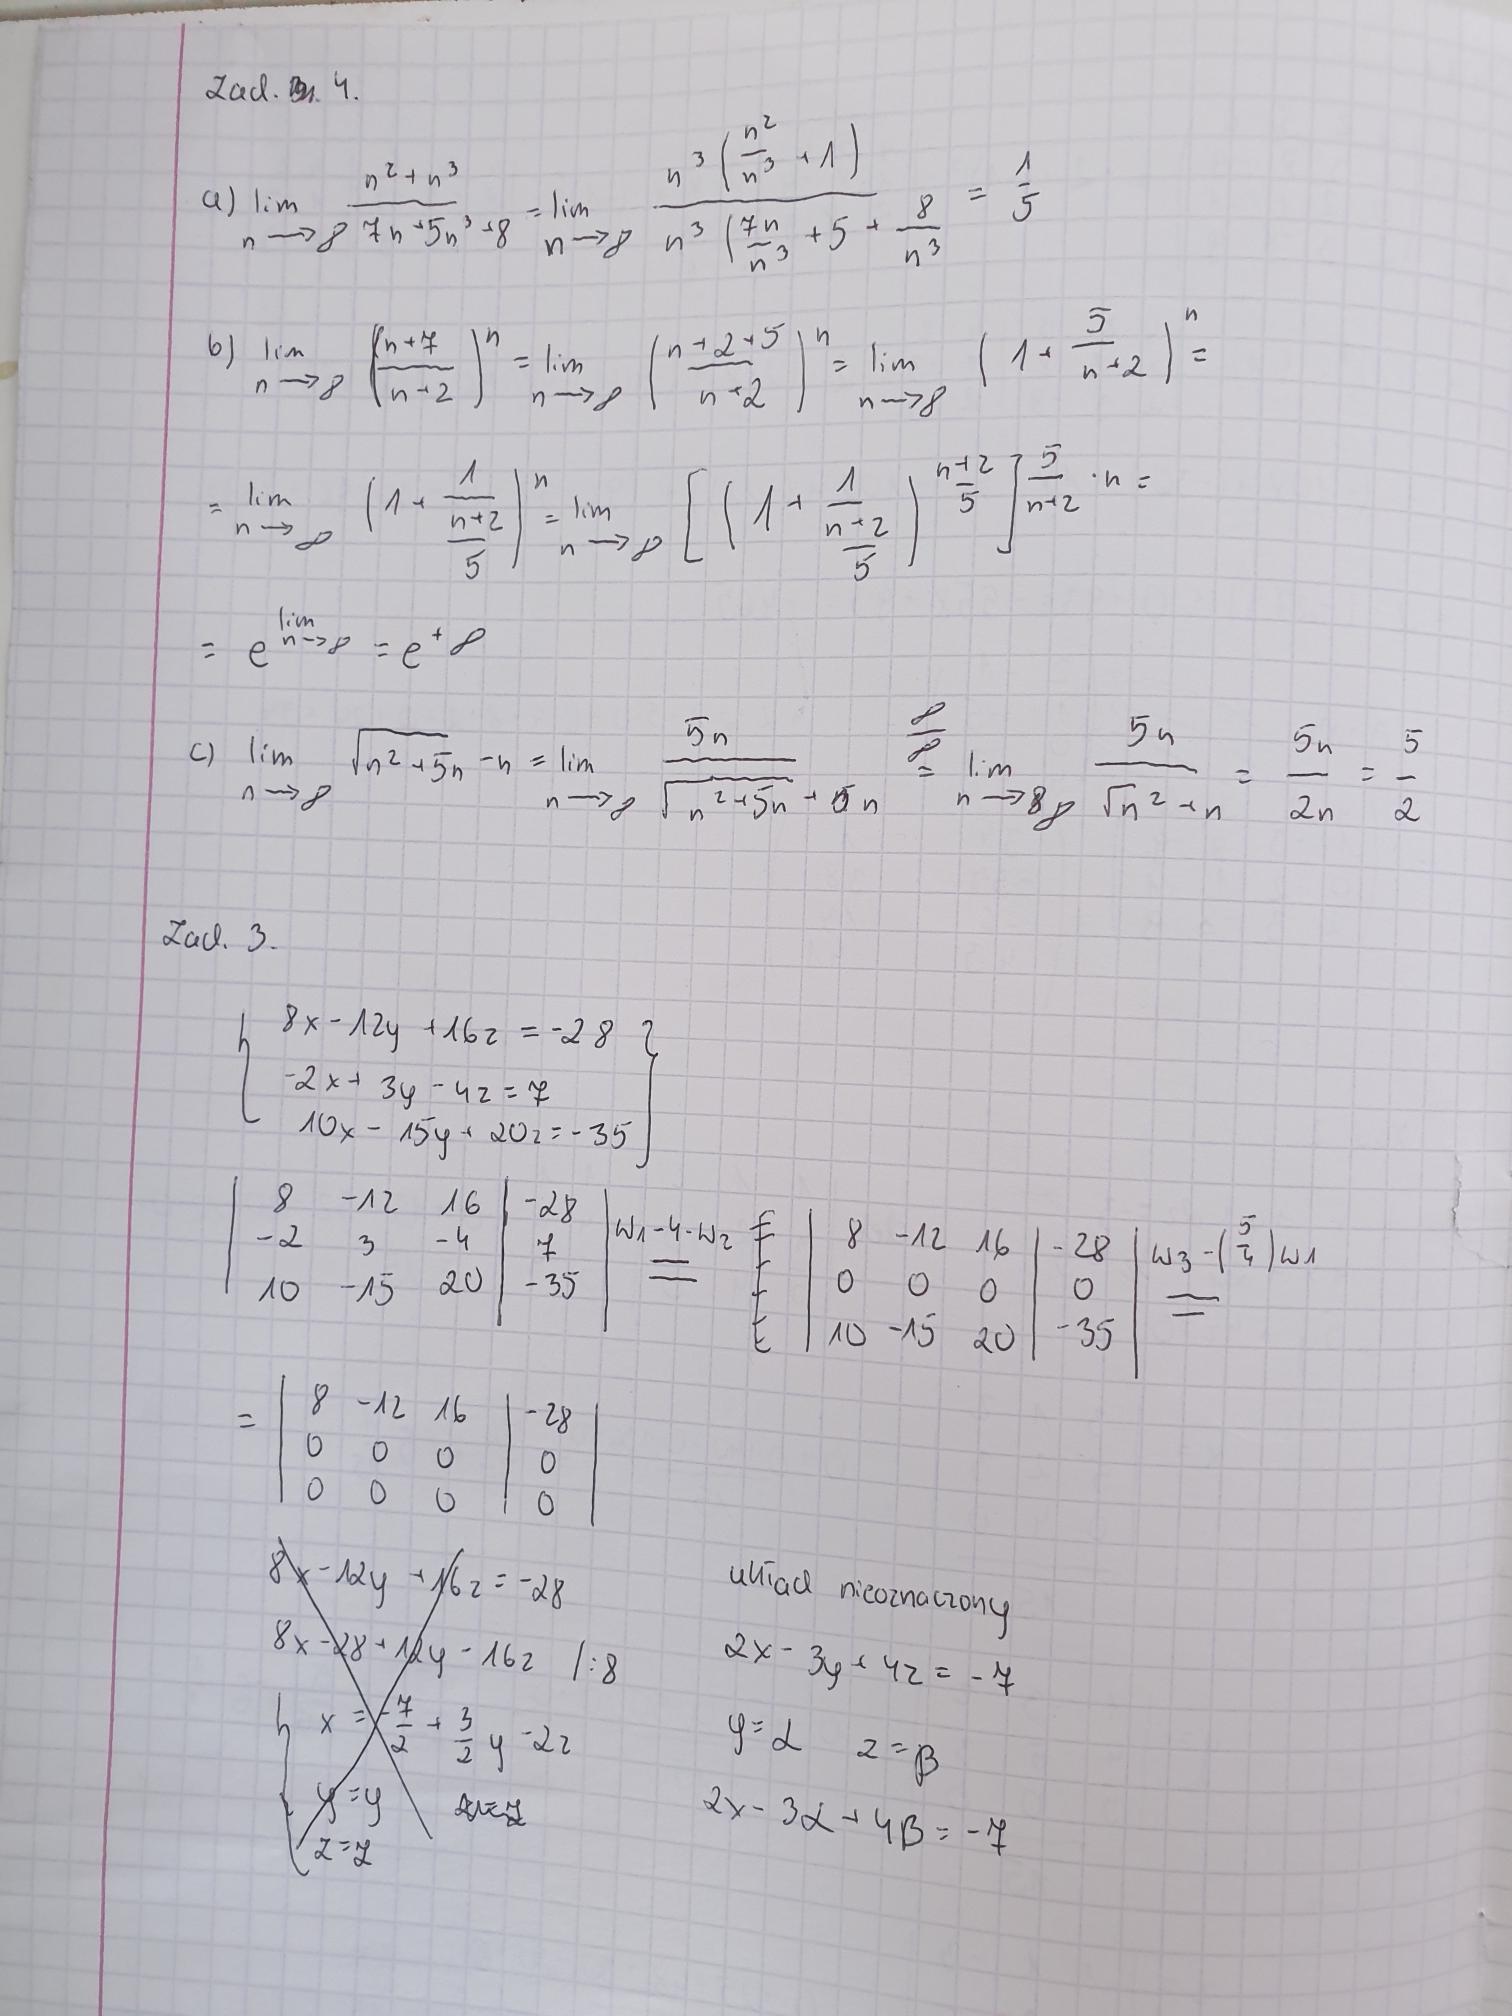 Zad. 4.
a) lim n→∞ (n² + n³)/(7n + 5n³ + 8) = lim n→∞ n³(n²/n³ + 1)/n³(7n/n³ + 5 + 8/n³ = 1/5
b) lim n→∞ ((n+7)/(n+2))ⁿ = lim n→∞ ((n+2+5)/(n+2))ⁿ = lim n→∞ (1 + 5/(n+2))ⁿ =
= lim n→∞ (1 + 1/((n+2)/5))ⁿ = lim n→∞ [(1 + 1/((n+2)/5))^((n+2)/5)]^(5/(n+2) · n) =
= e^(lim n→∞) = e^(+∞)
c) lim n→∞ √(n²+5n) - n = lim n→∞ 5n/(√(n²+5n) + n) =^(∞/∞) lim n→∞ 5n/(√n² + n) = 5n/2n = 5/2
Zad. 3.
{ 8x - 12y + 16z = -28 }
-2x + 3y - 4z = 7
10x - 15y + 20z = -35
| 8 -12 16 | -28 | w1-4·w2 = | 8 -12 16 | -28 | w3-(5/4)w1 =
| -2 3 -4 | 7 | | 0 0 0 | 0 |
| 10 -15 20 | -35 | | 10 -15 20 | -35 |
= | 8 -12 16 | -28 |
| 0 0 0 | 0 |
| 0 0 0 | 0 |
8x - 12y + 16z = -28
8x - 28 + 12y - 16z /:8
{ x = -7/2 + 3/2 y - 2z
y = y
z = z
układ nieoznaczony
2x - 3y + 4z = -7
y = α z = β
2x - 3α + 4β = -7